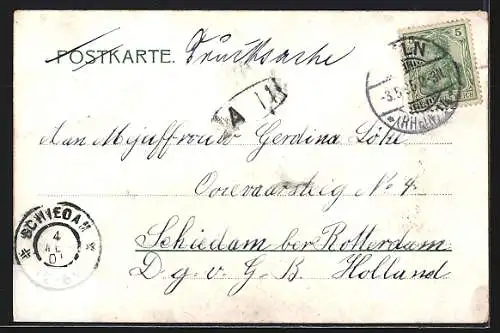 POSTKARTE. Drucksache
5
LN
3.5.
(RHEIN)
A 11
Aan Mejuffrouw Gerdina Löke
Ooievaarsteig No 4.
Schiedam ber Rotterdam
D. g. v. G. B. Holland
SCHIEDAM
4
01